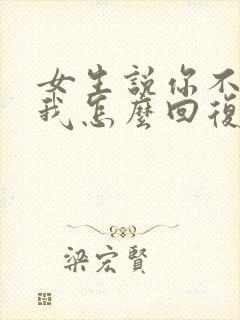 女生說你不
我怎麼回復
梁宏賢